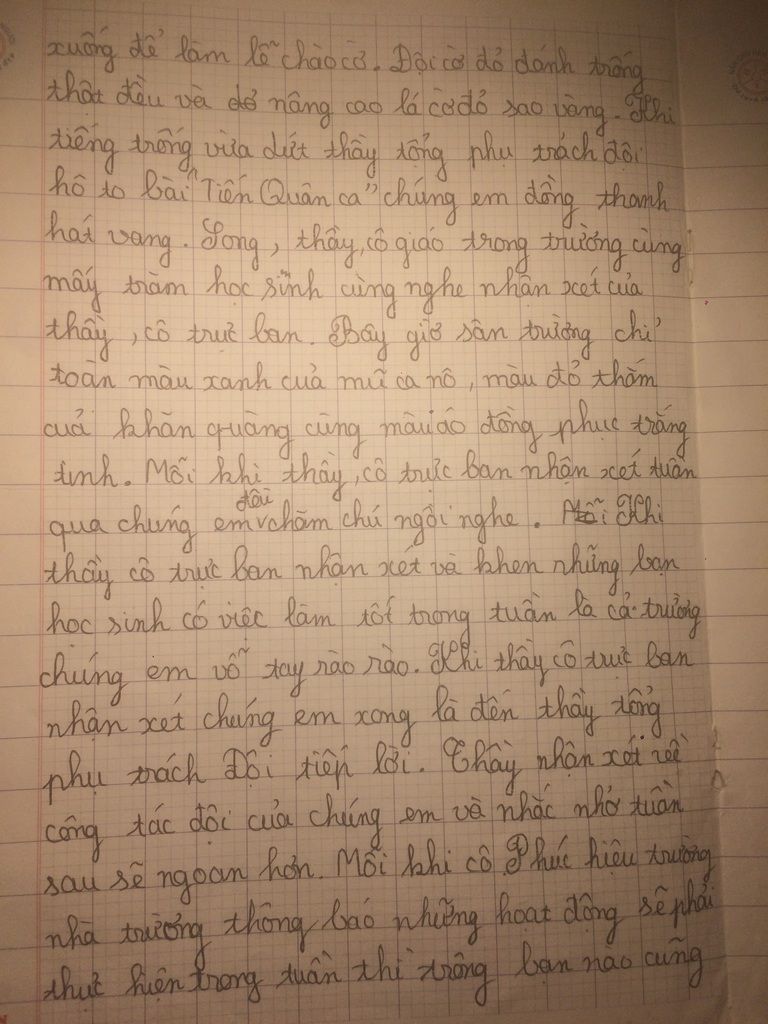 xuống để làm lễ chào cờ. Đội cờ đỏ đánh trống
thật đều và để nâng cao lá cờ đỏ sao vàng. Khi
tiếng trống vừa dứt thầy tổng phụ trách đội
hô to bài "Tiến Quân ca" chúng em đồng thanh
hát vang. Song, thầy, cô giáo trong trường cùng
mấy trăm học sinh cùng nghe nhận xét của
thầy, cô trực ban. Bây giờ sân trường chỉ
toàn màu xanh của mũ ca nô, màu đỏ thắm
của khăn quàng cùng màu áo đồng phục trắng
tinh. Mỗi khi thầy, cô trực ban nhận xét tuần
qua chúng em đều chăm chú ngồi nghe. Khi
thầy cô trực ban nhận xét và khen những bạn
học sinh có việc làm tốt trong tuần là cả trường
chúng em vỗ tay rào rào. Khi thầy cô trực ban
nhận xét chúng em xong là đến thầy tổng
phụ trách Đội tiếp lời. Thầy nhận xét về
công tác đội của chúng em và nhắc nhở tuần
sau sẽ ngoan hơn. Mỗi khi cô Phúc hiệu trường
nhà trường thông báo những hoạt động sẽ phải
thực hiện trong tuần thì trông bạn nào cũng